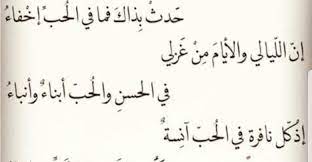 حَدثْ بِذَاكَ فما في الحُبِّ إخْفاءُ
إنّ اللّيالي والأيامَ مِنْ غَزلي
في الحسنِ والحُبّ أبناءٌ وأنباءُ
إذكل نافرة في الحبّ آنِسةٌ